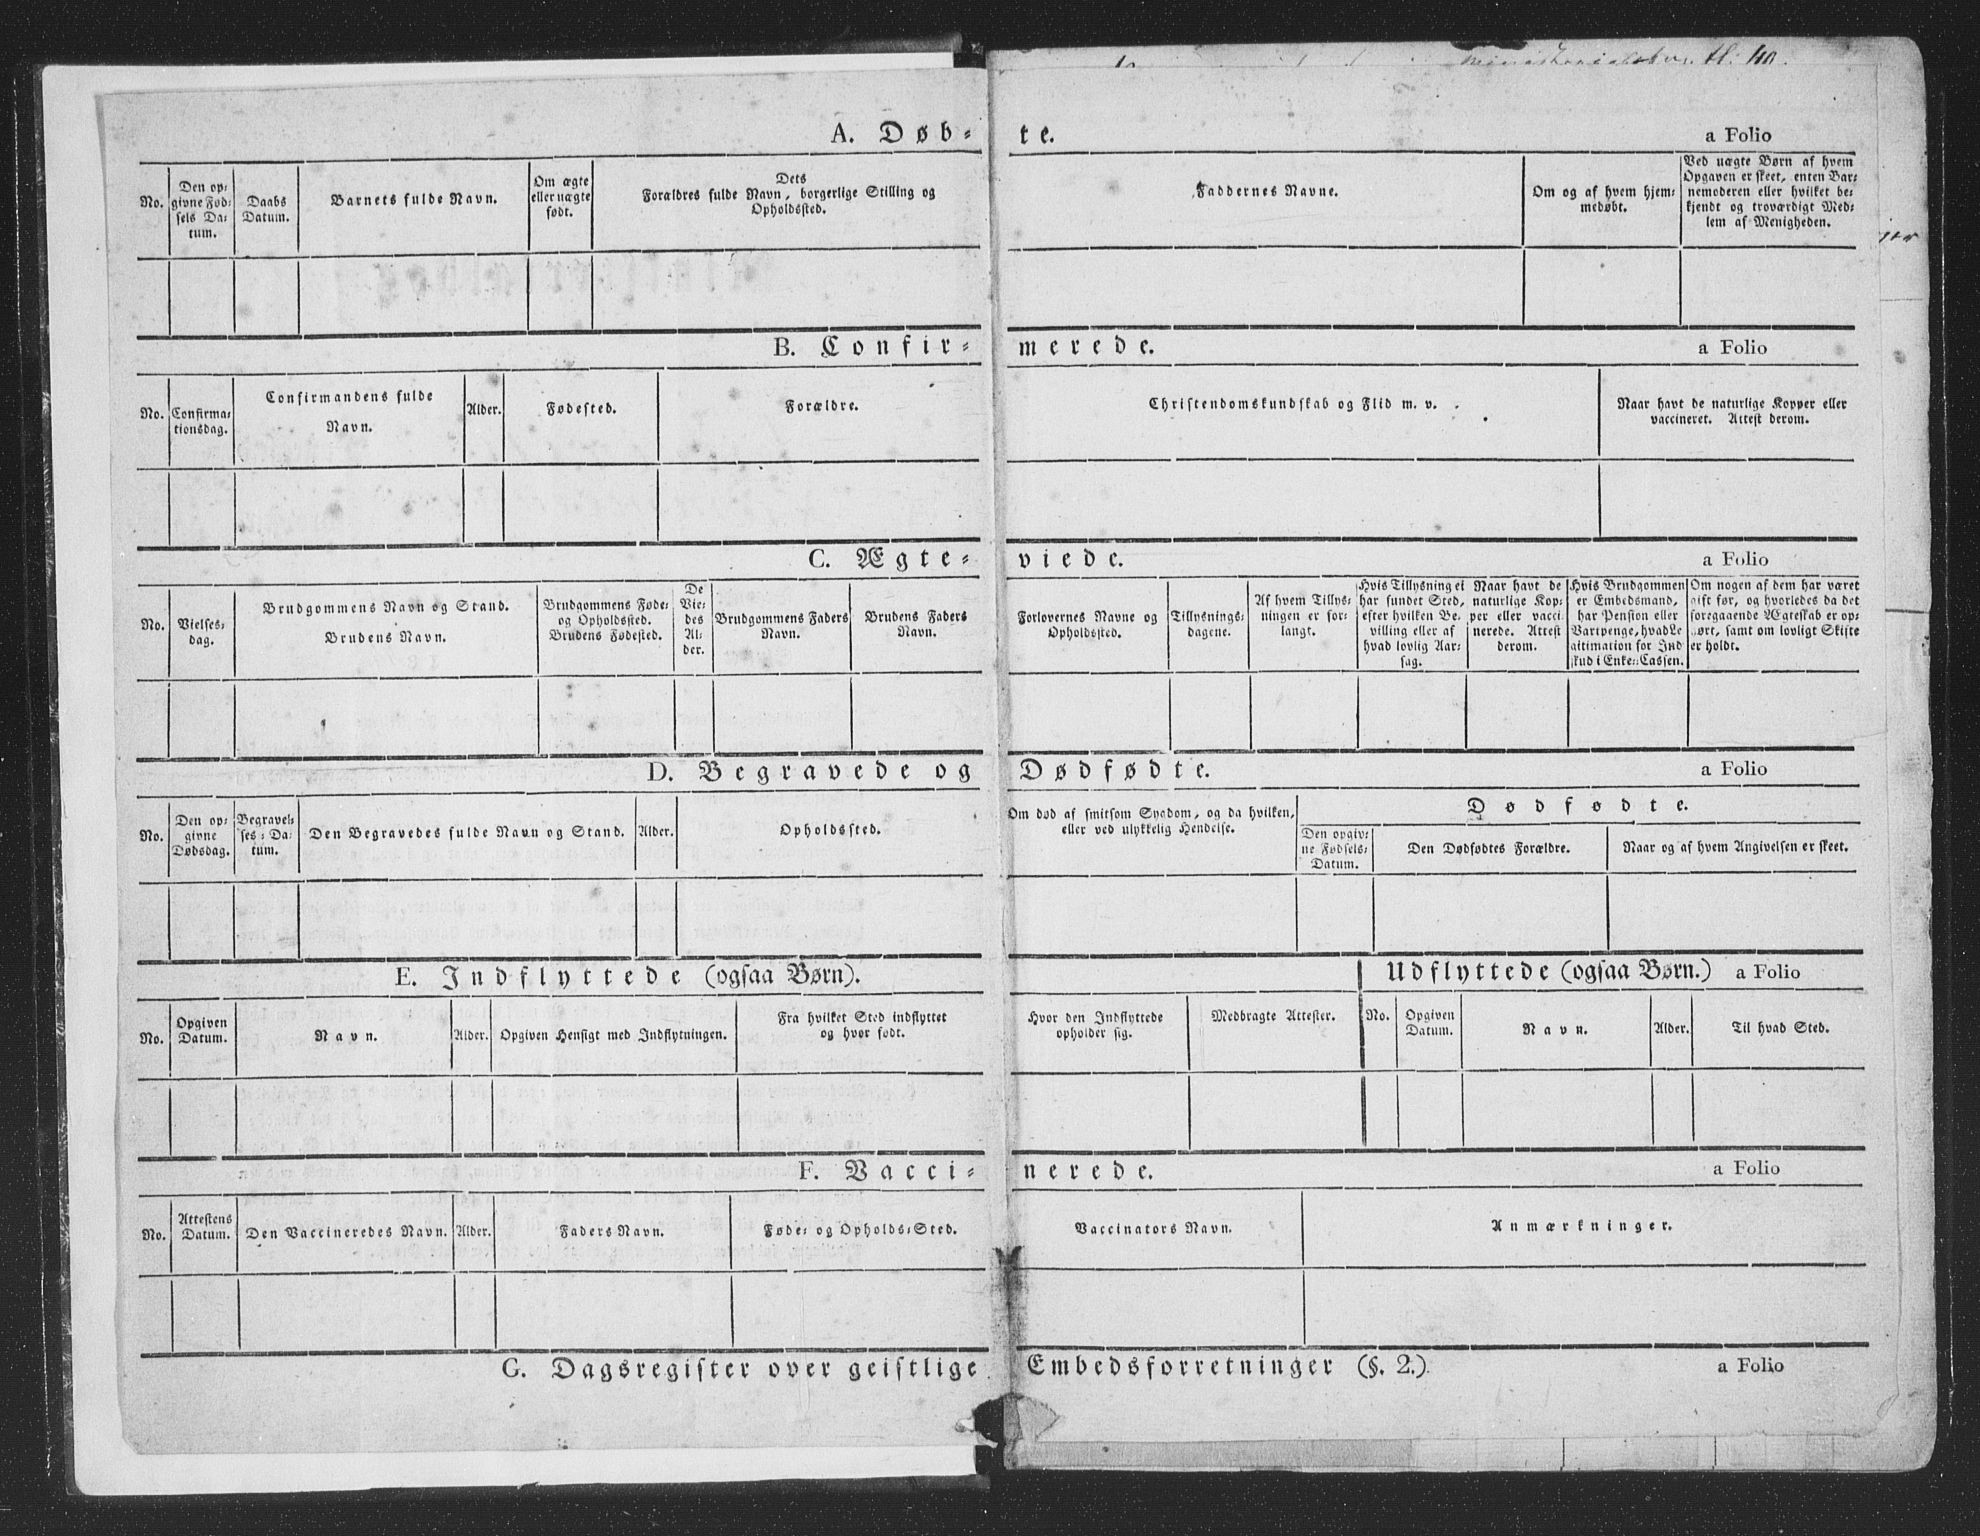 A. Døb- te. a Folio
No.
Den op-
givne Fød-
sels Da-
tum.
Daabs
Datum.
Barnets fulde Navn.
Om ægte
eller uægte
født.
Dets
Forældres fulde Navn, borgerlige Stilling og
Opholdssted.
Faddernes Navne.
Om og af hvem hjem-
medøbt.
Ved uægte Børn af hvem
Opgaven er skeet, enten Bar-
nemoderen eller hvilket be-
kjendt og troværdigt Med-
lem af Menigheden.
B. Confir- merede. a Folio
No.
Confirma-
tionsdag.
Confirmandens fulde
Navn.
Alder.
Fødested.
Forældre.
Christendomskundskab og Flid m. v.
Naar havt de naturlige Kopper eller
vaccineret. Attest derom.
C. Ægte- viede. a Folio
No.
Vielses-
dag.
Brudgommens Navn og Stand.
Brudens Navn.
Brudgommens Føde-
og Opholdssted.
Brudens Fødested.
De
Vie-
des
Al-
der.
Brudgommens Faders
Navn.
Brudens Faders
Navn.
Forlovernes Navne og
Opholdssted.
Tillysnings-
dagene.
Af hvem Tillys-
ningen er for-
langt.
Hvis Tillysning ei
har fundet Sted,
efter hvilken Be-
villing eller af
hvad lovlig Aar-
sag.
Naar havt de
naturlige Kop-
per eller vacci-
nerede. Attest
derom.
Hvis Brudgommen
er Embedsmand,
har Pension eller
Vartpenge, hvad Le-
gitimation for Ind-
skud i Enke-Cassen.
Om nogen af dem har været
gift før, og hvorledes da det
foregaaende Ægteskab er op-
hørt, samt om lovligt Skifte
er holdt.
D. Begravede og Dødfødte. a Folio
No.
Den op-
givne
Dødsdag.
Begravel-
ses-Da-
tum.
Den Begravedes fulde Navn og Stand.
Alder.
Opholdssted.
Om død af smitsom Sygdom, og da hvilken,
eller ved ulykkelig Hendelse.
Dødfødte.
Den opgiv-
ne Fødsels-
Datum.
Den Dødfødtes Forældre.
Naar og af hvem Angivelsen er skeet.
E. Indflyttede (ogsaa Børn). Udflyttede (ogsaa Børn.) a Folio
No.
Opgiven
Datum.
Navn.
Alder.
Opgiven Hensigt med Indflytningen.
Fra hvilket Sted indflyttet
og hvor født.
Hvor den Indflyttede
opholder sig.
Medbragte Attester.
No.
Opgiven
Datum.
Navn.
Alder.
Til hvad Sted.
F. Vacci- nerede. a Folio
No.
Attestens
Datum.
Den Vaccineredes Navn.
Alder.
Faders Navn.
Føde- og Opholds-Sted.
Vaccinators Navn.
Anmærkninger.
G. Dagsregister over geistlige Embedsforretninger (§. 2.) a Folio